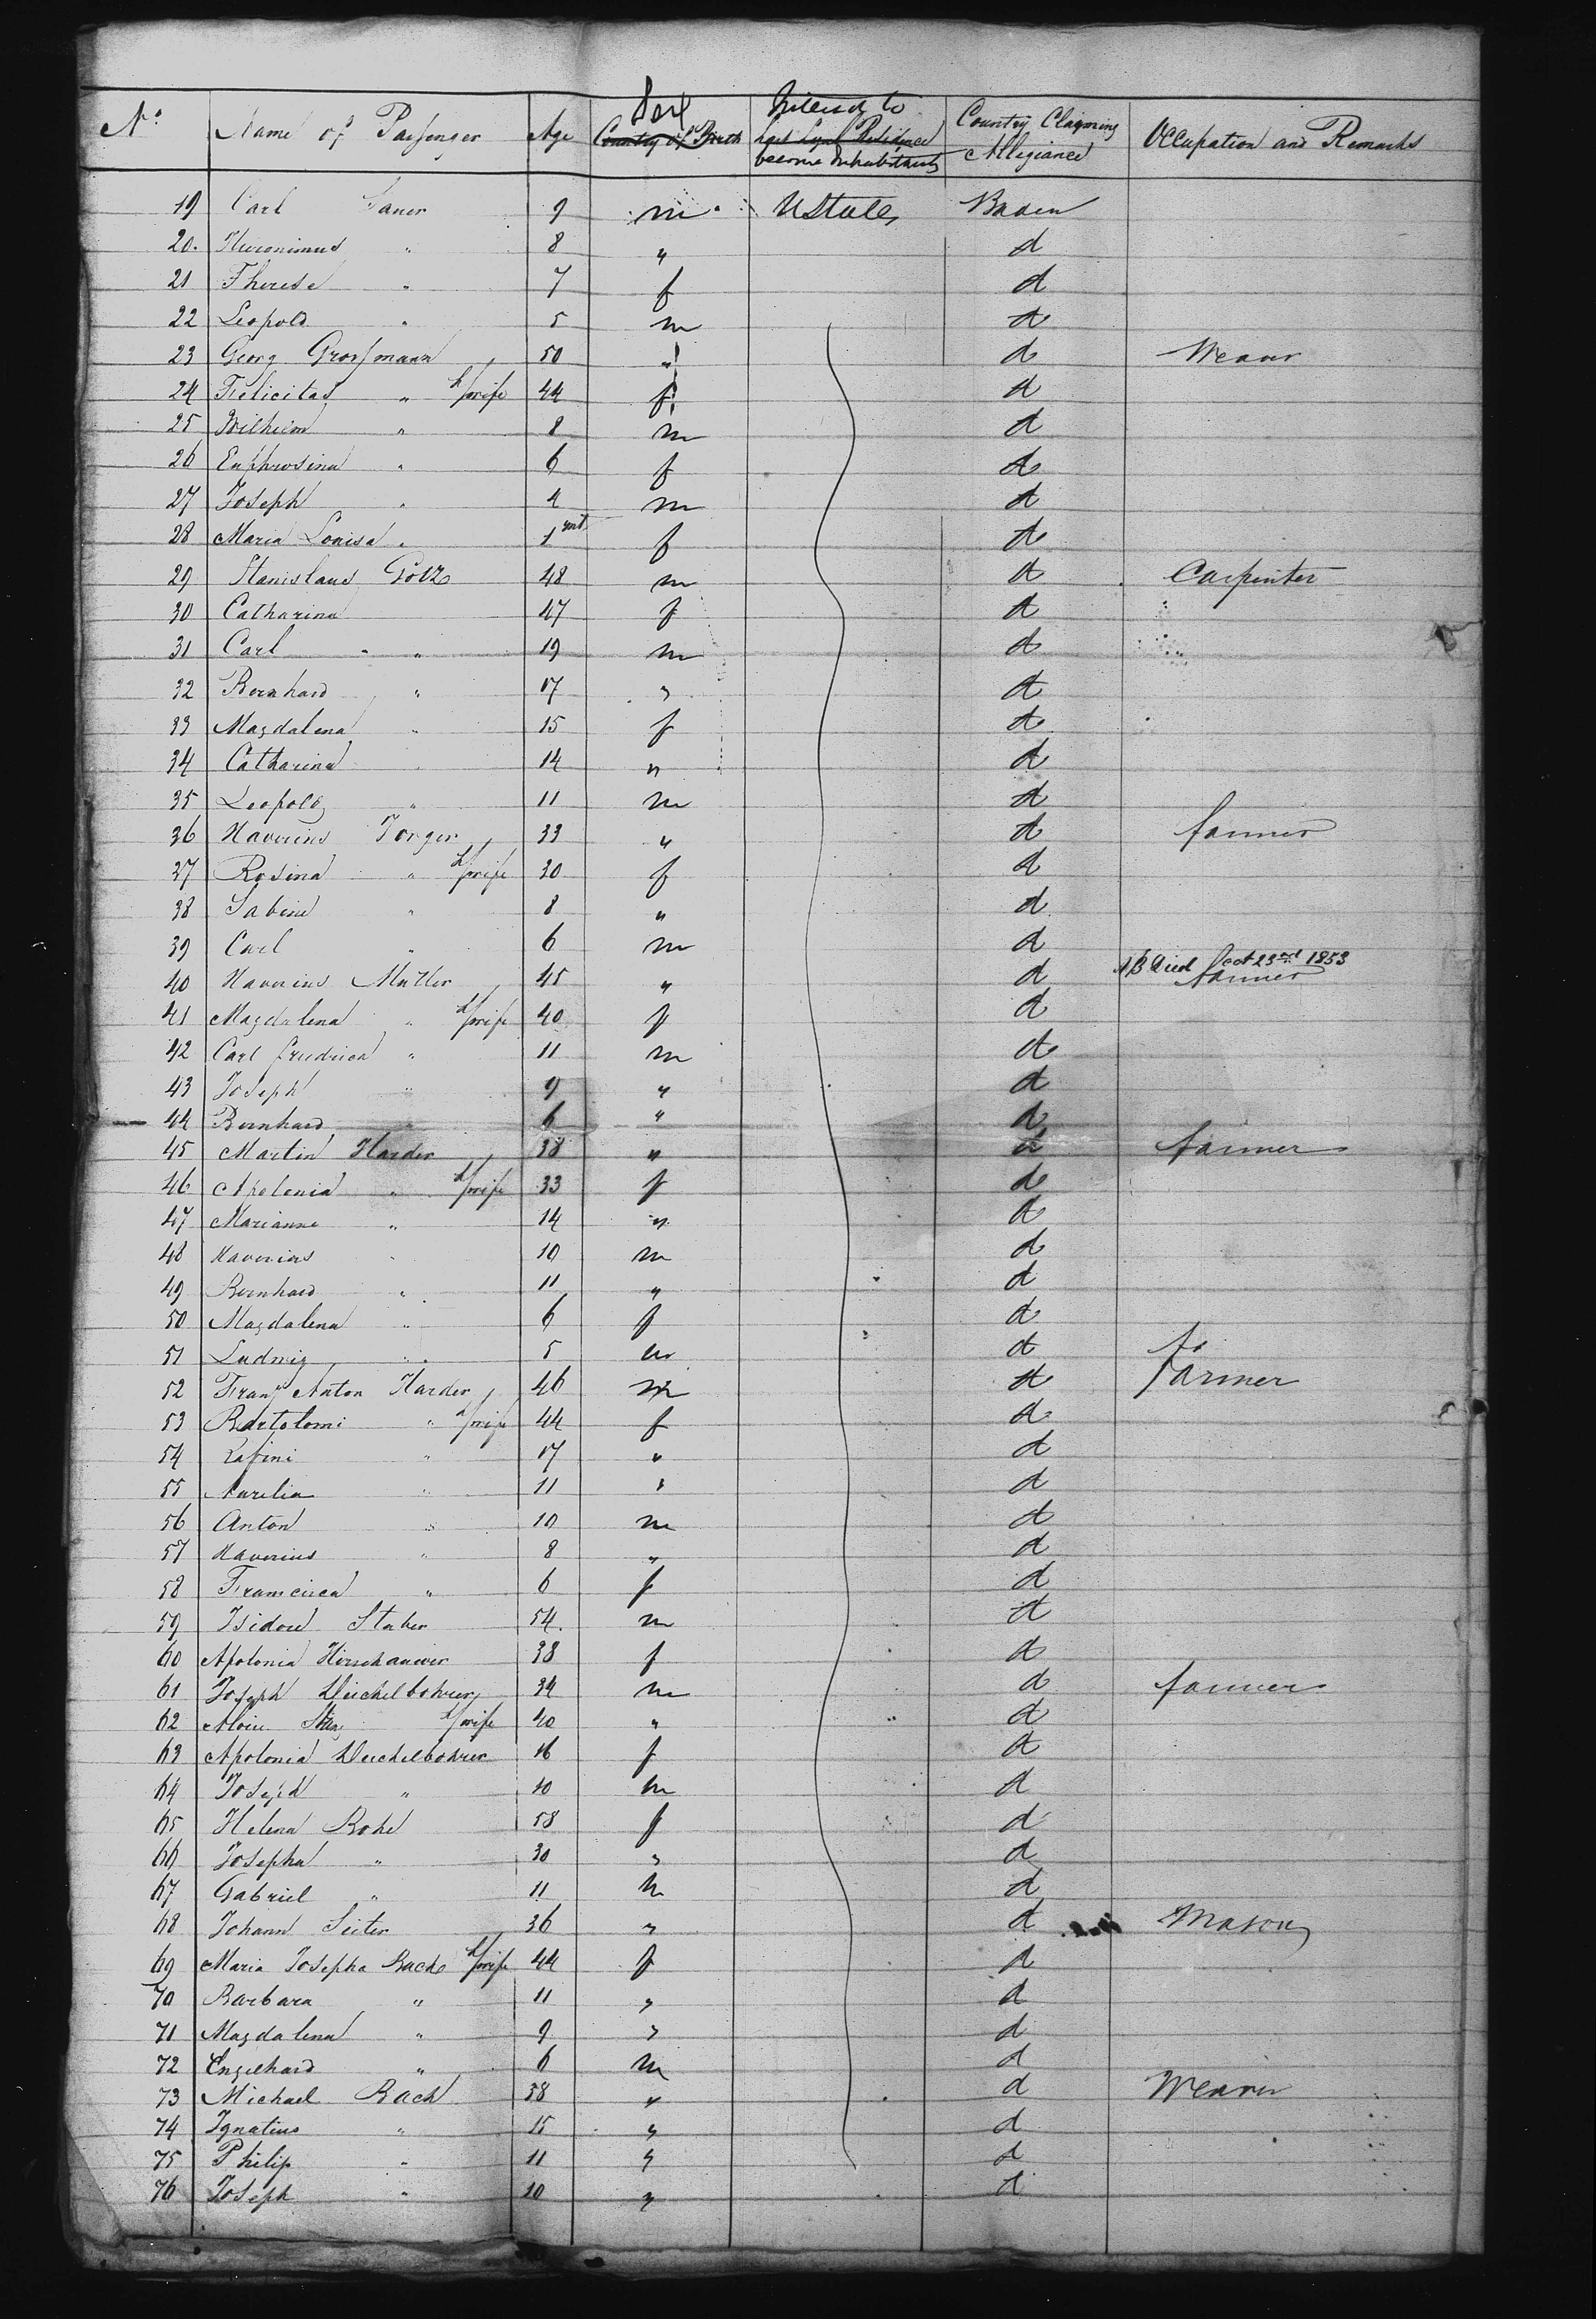 No. Name of Passenger Age Sex Country of Birth Intend to Last Legal Residence become Inhabitants Country Clayming Allegiance Occupation and Remarks
19 Carl Sauer 9 m UStates Baden
20. Hieronimus " 8 " d
21 Therese " 7 f d
22 Leopold " 5 m d
23 Georg Grossmann 50 " d Weaver
24 Felicitas " h/wife 44 f d
25 Wilhelm " 8 m d
26 Euphrosina " 6 f d
27 Joseph " 4 m d
28 Maria Louisa " 1 mt f d
29 Stanislaus Götz 48 m d Carpenter
30 Catharina 47 f d
31 Carl " " 19 m d
32 Bernhard " 17 " d
33 Magdalena " 15 f d
34 Catharina " 14 " d
35 Leopold " 11 m d
36 Xaverius Jorger 33 " d farmer
37 Rosina " h/wife 30 f d
38 Sabine " 8 " d
39 Carl " 6 m d
40 Xaverius Muller 45 " d NB Died Oct 23rd 1853 farmer
41 Magdalena " h/wife 40 f d
42 Carl Friedrich " 11 m d
43 Joseph " 9 " d
44 Bernhard " 6 " d
45 Martin Harder 38 " d farmer
46 Apolonia " h/wife 33 f d
47 Marianne " 14 " d
48 Xaverius " 10 m d
49 Bernhard " 11 " d
50 Magdalena " 6 f d
51 Ludwig " 5 m d
52 Franz Anton Harder 46 m d farmer
53 Bartolomi " h/wife 44 f d
54 " 17 " d
55 Aurelia " 11 " d
56 Anton " 10 m d
57 Xaverius " 8 " d
58 Francisca " 6 f d
59 Isidore 54. m d
60 Apolonia 38 f d
61 Joseph Deichelbohrer 34 m d farmer
62 h/wife 40 " d
63 Apolonia Deichelbohrer 16 f d
64 Joseph " 10 m d
65 Helena Bohe 58 f d
66 Josepha " 30 " d
67 Gabriel " 11 m d
68 Johann Seiter 36 " d Mason
69 Maria Josepha Bach h/wife 44 f d
70 Barbara " 11 " d
71 Magdalena " 9 " d
72 Engelhard " 6 m d
73 Michael Bach 58 " d Weaver
74 Ignatius " 15 " d
75 Philip " 11 " d
76 Joseph " 10 " d